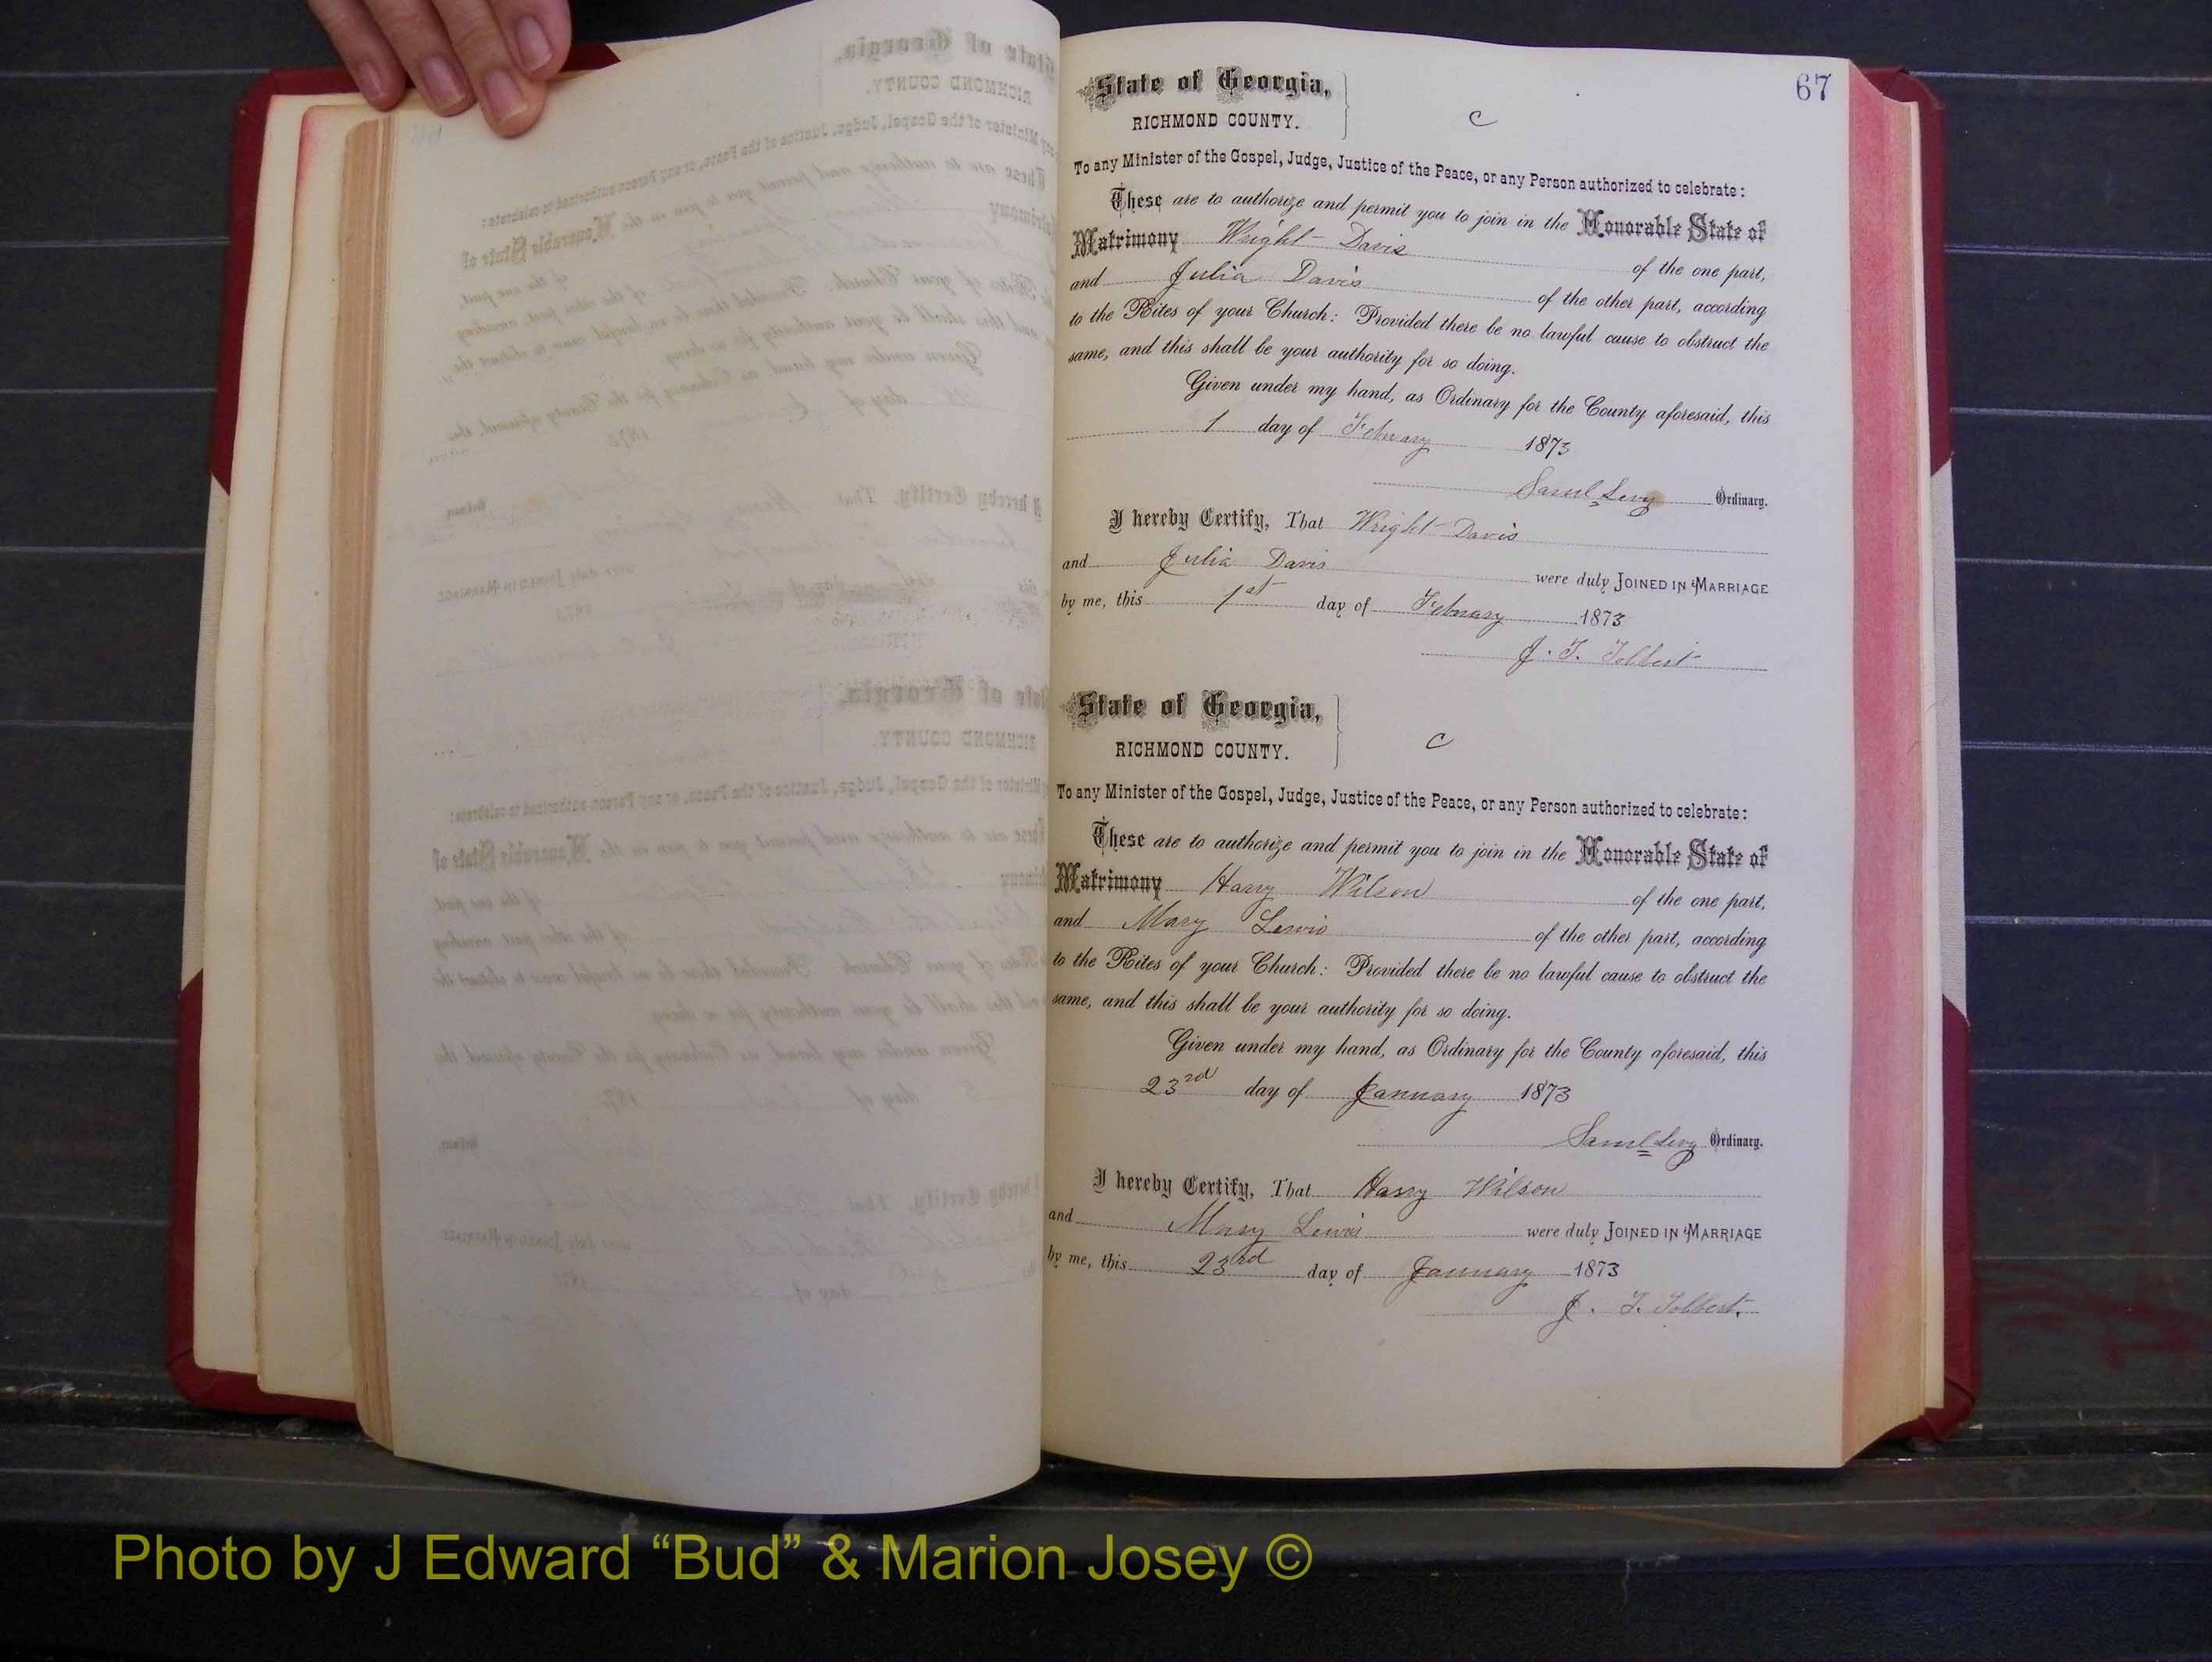 67
State of Georgia,
RICHMOND COUNTY.
C
To any Minister of the Gospel, Judge, Justice of the Peace, or any Person authorized to celebrate:
These are to authorize and permit you to join in the Honorable State of
Matrimony Wright Davis of the one part,
and Julia Davis of the other part, according
to the Rites of your Church: Provided there be no lawful cause to obstruct the
same, and this shall be your authority for so doing.
Given under my hand, as Ordinary for the County aforesaid, this
1 day of February 1873
Saml Levy Ordinary.
I hereby Certify, That Wright Davis
and Julia Davis were duly JOINED IN MARRIAGE
by me, this 1st day of February 1873
J. T. Tolbert
State of Georgia,
RICHMOND COUNTY.
C
To any Minister of the Gospel, Judge, Justice of the Peace, or any Person authorized to celebrate:
These are to authorize and permit you to join in the Honorable State of
Matrimony Harry Wilson of the one part,
and Mary Lewis of the other part, according
to the Rites of your Church: Provided there be no lawful cause to obstruct the
same, and this shall be your authority for so doing.
Given under my hand, as Ordinary for the County aforesaid, this
23rd day of January 1873
Saml Levy Ordinary.
I hereby Certify, That Harry Wilson
and Mary Lewis were duly JOINED IN MARRIAGE
by me, this 23rd day of January 1873
J. T. Tolbert.
Photo by J Edward “Bud” & Marion Josey ©